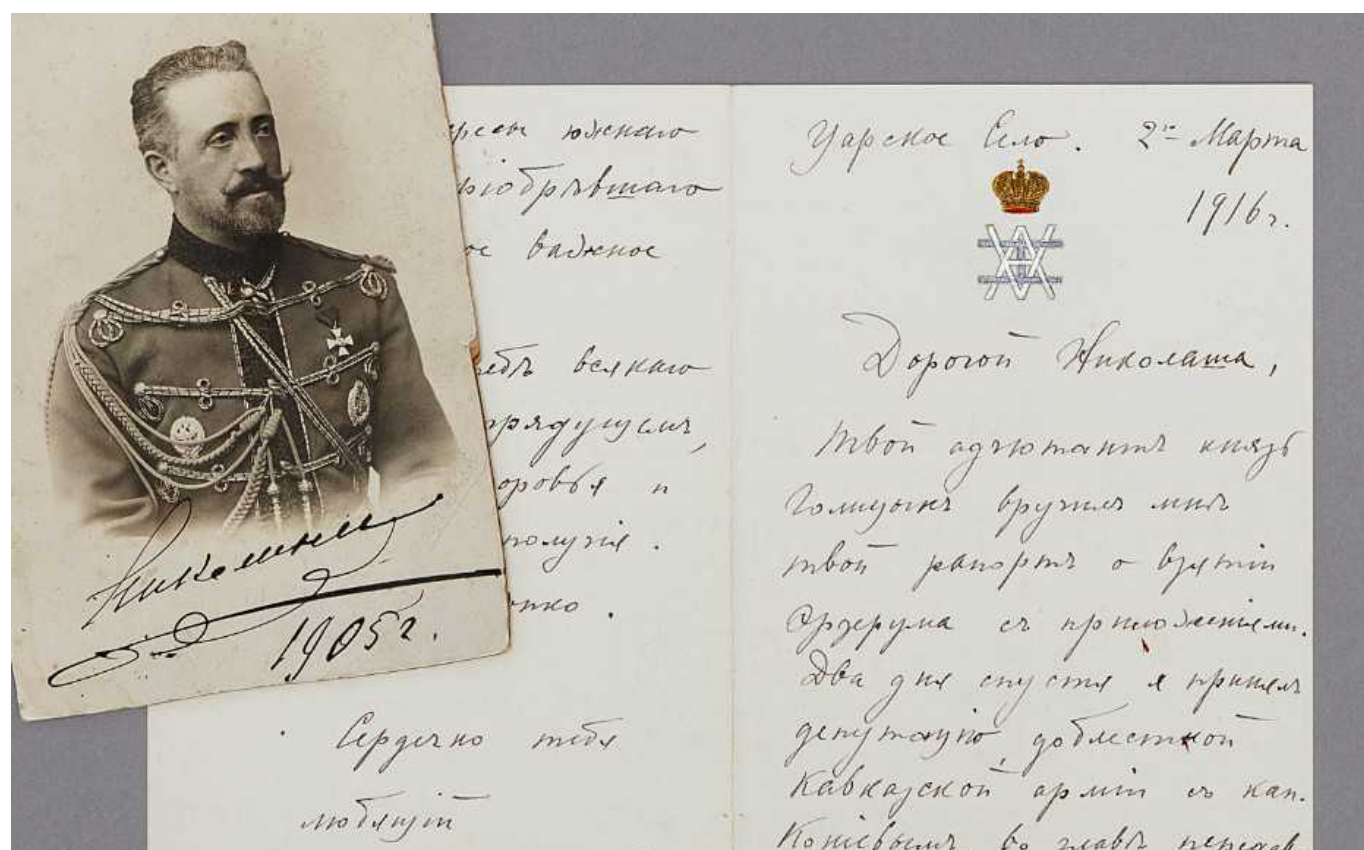 Николай
1905 г.
ересы южнаго
ріобрѣвшаго
ое важное
ебѣ всякаго
грядущемъ,
оровья и
получія.
пко.
Сердечно тебя
любящій
Царское Село. 2го Марта
1916 г.
Дорогой Николаша,
Твой адъютантъ князь
Голицынъ вручилъ мнѣ
твой рапортъ о взятіи
Эрзерума съ приложеніями.
Два дня спустя я принялъ
депутацію доблестной
Кавказской арміи съ кап.
во главѣ